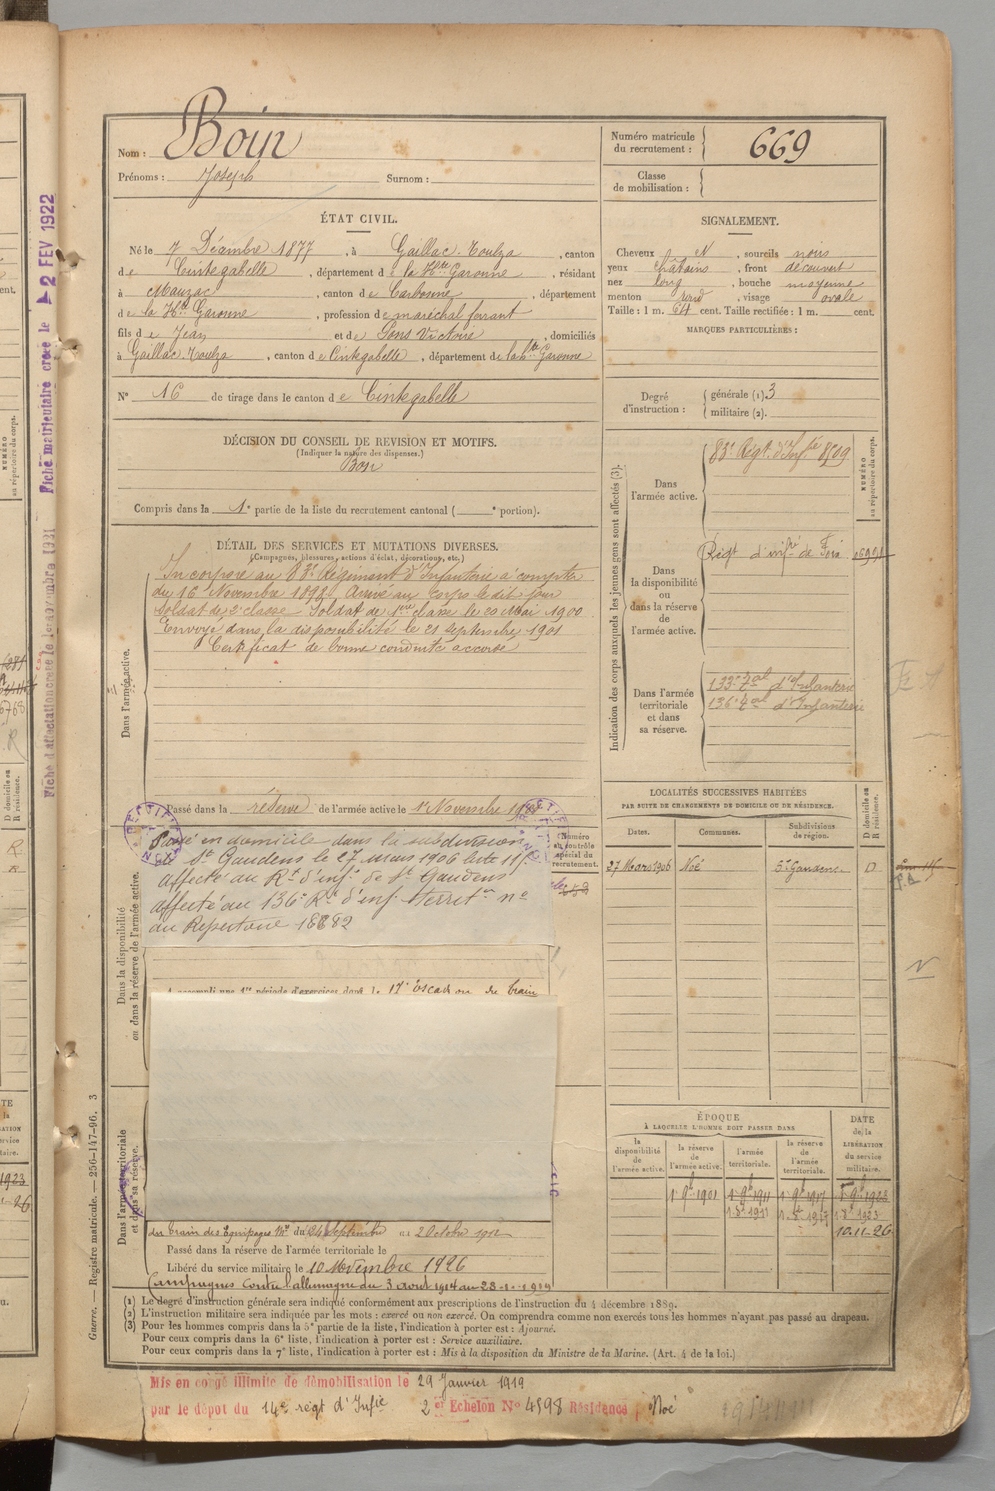 Nom : Boin
Prénoms : Joseph Surnom :
Numéro matricule du recrutement : 669
Classe de mobilisation :
ÉTAT CIVIL.
Né le 7 Décembre 1877, à Gaillac-Toulza, canton
de Cintegabelle, département de la Hte Garonne, résidant
à Mauzac, canton de Carbonne, département
de la Hte Garonne, profession de maréchal ferrant
fils de Jean et de Pons Victoire, domiciliés
à Gaillac-Toulza, canton de Cintegabelle, département de la Hte Garonne
SIGNALEMENT.
Cheveux N, sourcils noirs
yeux châtains, front découvert
nez long, bouche moyenne
menton rond, visage ovale
Taille : 1 m. 64 cent. Taille rectifiée : 1 m. cent.
MARQUES PARTICULIÈRES :
N° 16 de tirage dans le canton de Cintegabelle
Degré d'instruction : générale (1) 3
militaire (2).
DÉCISION DU CONSEIL DE REVISION ET MOTIFS.
(Indiquer la nature des dispenses.)
Bon
Compris dans la 1e partie de la liste du recrutement cantonal ( e portion).
DÉTAIL DES SERVICES ET MUTATIONS DIVERSES.
(Campagnes, blessures, actions d'éclat, décorations, etc.)
Dans l'armée active.
Incorporé au 83e Régiment d'Infanterie à compter
du 16 Novembre 1898. Arrivé au corps le dit jour
soldat de 2e classe. Soldat de 1ere classe le 20 Mai 1900
Envoyé dans la disponibilité le 21 septembre 1901
Certificat de bonne conduite accordé
Passé dans la réserve de l'armée active le 1er Novembre
Dans la disponibilité ou dans la réserve de l'armée active.
RECTIFICATION
Passé en domicile dans la subdivision
de St Gaudens le 27 mars 1906
affecté au Rt d'inf. de St Gaudens
affecté au 136e Rt d'inf territ. no
du Repertoire 18882
Numéro au contrôle spécial du recrutement.
A accompli une 1re période d'exercices dans le 17e escadron du train
Dans l'armée territoriale et dans sa réserve.
du train des Equipages Mre du Septembre au 2 Octobre
Passé dans la réserve de l'armée territoriale le
Libéré du service militaire le 10 Novembre 1926
Campagnes Contre l'allemagne du 3 Aout 1914 au
Indication des corps auxquels les jeunes gens sont affectés (3).
NUMÉRO au répertoire du corps.
Dans l'armée active.
83e Régt d'Infie 8509
Dans la disponibilité ou dans la réserve de l'armée active.
Régt d'infie de Foix
Dans l'armée territoriale et dans sa réserve.
133e Tal d'Infanterie
136e Tal d'Infanterie
LOCALITÉS SUCCESSIVES HABITÉES
PAR SUITE DE CHANGEMENTS DE DOMICILE OU DE RÉSIDENCE.
Dates. Communes. Subdivisions de région. D domicile ou R résidence.
27 Mars 1906 Noé St Gaudens D
ÉPOQUE
À LAQUELLE L'HOMME DOIT PASSER DANS
la disponibilité de l'armée active. la réserve de l'armée active. l'armée territoriale. la réserve de l'armée territoriale. DATE de la LIBÉRATION du service militaire.
1er 9bre 1901 1er 9bre 1911 1er 9bre 1917 1er 9bre 1923
10.11.26
(1) Le degré d'instruction générale sera indiqué conformément aux prescriptions de l'instruction du 4 décembre 1889.
(2) L'instruction militaire sera indiquée par les mots : exercé ou non exercé. On comprendra comme non exercés tous les hommes n'ayant pas passé au drapeau.
(3) Pour les hommes compris dans la 5e partie de la liste, l'indication à porter est : Ajourné.
Pour ceux compris dans la 6e liste, l'indication à porter est : Service auxiliaire.
Pour ceux compris dans la 7e liste, l'indication à porter est : Mis à la disposition du Ministre de la Marine. (Art. 4 de la loi.)
Mis en congé illimité de démobilisation le 29 Janvier 1919
par le dépôt du 14e régt d'Infie 2me Echelon N° 4598 Résidence : Noé
Guerre. — Registre matricule. — 256-147-96. 3
Fiche matriculaire créée le 2 FEV 1922
Fiche d'affectation créée le